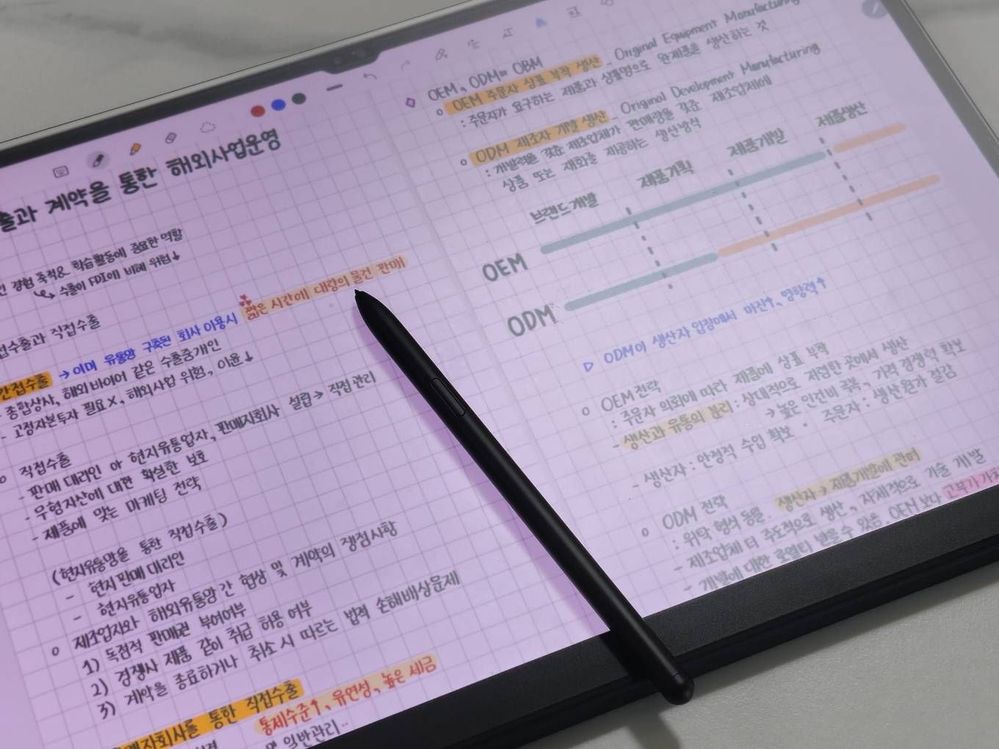 출과 계약을 통한 해외사업운영
경험 축적으로 학습활동에 중요한 역할
↳ 수출이 FDI에 비해 위험↓
접수출과 직접수출
간접수출 → 이미 유통망 구축된 회사 이용시 짧은 시간에 대량의 물건 판매
- 종합상사, 해외바이어 같은 수출중개인
- 고정자본투자 필요 X, 해외사업 위험, 이윤↓
○ 직접수출
- 판매 대리인 or 현지유통업자, 판매자회사 설립 → 직접 관리
- 무형자산에 대한 확실한 보호
- 제품에 맞는 마케팅 전략
(현지유통망을 통한 직접수출)
- 현지 판매 대리인
- 현지유통업자
○ 제조업자와 해외유통망 간 협상 및 계약의 쟁점사항
1) 독점적 판매권 부여여부
2) 경쟁사 제품 같이 취급 허용 여부
3) 계약을 종료하거나 취소 시 따르는 법적 손해배상문제
매자회사를 통한 직접수출
통제수준↑, 유연성, 높은 세금
및 일반관리..
OEM, ODM, OBM
○ OEM 주문자 상표 부착 생산 _ Original Equipment Manufacturing
: 주문자가 요구하는 제품과 상표명으로 완제품을 생산하는 것
○ ODM 제조자 개발 생산 _ Original Development Manufacturing
: 개발력을 갖춘 제조업체가 판매망을 갖춘 제조업체에
상품 또는 재화를 제공하는 생산방식
브랜드개발 제품기획 제품개발 제품생산
OEM
ODM
▷ ODM이 생산자 입장에서 마진↑, 영향력↑
○ OEM 전략
: 주문자 의뢰에 따라 제품에 상표 부착
- 생산과 유통의 분리 : 상대적으로 저렴한 곳에서 생산
→ 높은 인건비 극복, 가격 경쟁력 확보
- 생산자 : 안정적 수입 확보 · 주문자 : 생산원가 절감
○ ODM 전략 생산자 → 제품개발에 관여
: 위탁 형식 동일
- 제조업체 더 주도적으로 생산, 자체적으로 기술 개발
- 개발에 대한 로열티 받을 수 있음 OEM 보다 고부가가